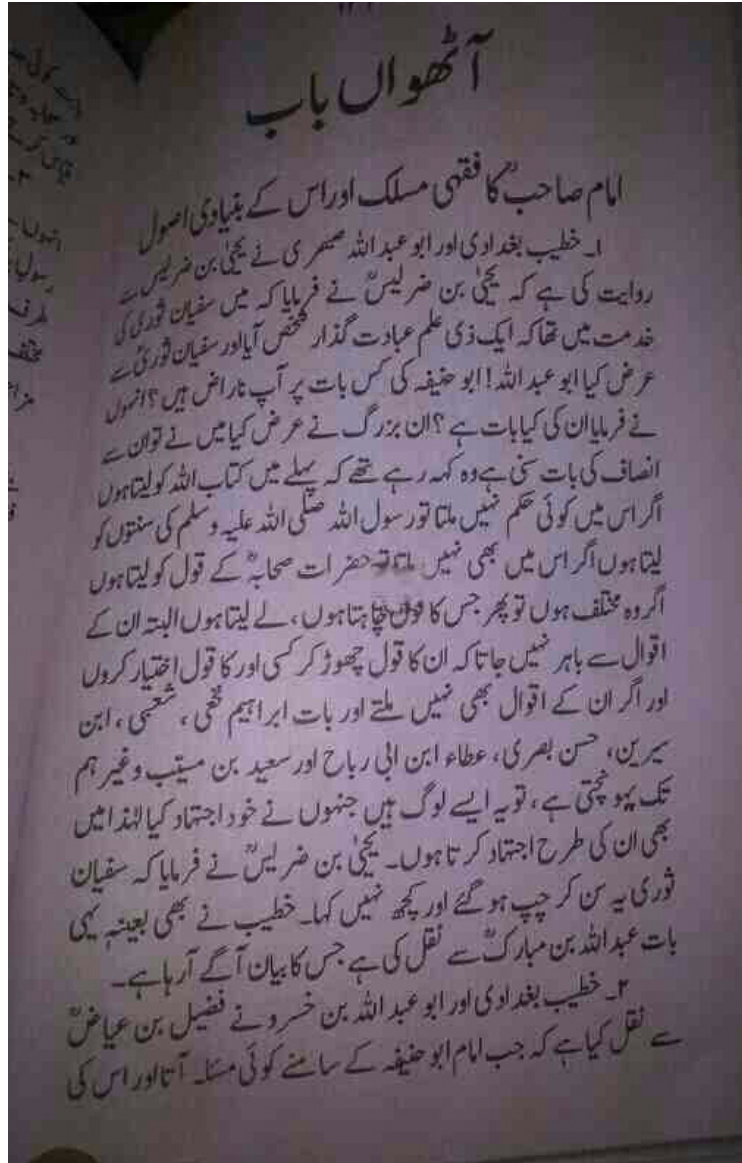 آٹھواں باب
امام صاحبؒ کا فقہی مسلک اور اس کے بنیادی اصول
۱۔ خطیب بغدادی اور ابو عبد اللہ صمری نے یحییٰ بن ضریس سے
روایت کی ہے کہ یحییٰ بن ضریسؒ نے فرمایا کہ میں سفیان ثوری کی
خدمت میں تھا کہ ایک ذی علم عبادت گذار شخص آیا اور سفیان ثوریؒ سے
عرض کیا ابو عبد اللہ! ابو حنیفہ کی کس بات پر آپ ناراض ہیں؟ انہوں
نے فرمایا ان کی کیا بات ہے؟ ان بزرگ نے عرض کیا میں نے تو ان سے
انصاف کی بات سنی ہے وہ کہہ رہے تھے کہ پہلے میں کتاب اللہ کو لیتا ہوں
اگر اس میں کوئی حکم نہیں ملتا تو رسول اللہ صلی اللہ علیہ وسلم کی سنتوں کو
لیتا ہوں اگر اس میں بھی نہیں ملتا تو حضرات صحابہؓ کے قول کو لیتا ہوں
اگر وہ مختلف ہوں تو پھر جس کا قول چاہتا ہوں، لے لیتا ہوں البتہ ان کے
اقوال سے باہر نہیں جاتا کہ ان کا قول چھوڑ کر کسی اور کا قول اختیار کروں
اور اگر ان کے اقوال بھی نہیں ملتے اور بات ابراہیم نخعی، شعبی، ابن
سیرین، حسن بصری، عطاء ابن ابی رباح اور سعید بن مسیب وغیرہم
تک پہونچتی ہے، تو یہ ایسے لوگ ہیں جنہوں نے خود اجتہاد کیا لہٰذا میں
بھی ان کی طرح اجتہاد کرتا ہوں۔ یحییٰ بن ضریسؒ نے فرمایا کہ سفیان
ثوری یہ سن کر چپ ہو گئے اور کچھ نہیں کہا۔ خطیب نے بھی بعینہٖ یہی
بات عبد اللہ بن مبارکؒ سے نقل کی ہے جس کا بیان آگے آرہا ہے۔
۲۔ خطیب بغدادی اور ابو عبد اللہ بن خسرو نے فضیل بن عیاضؒ
سے نقل کیا ہے کہ جب امام ابو حنیفہ کے سامنے کوئی مسئلہ آتا اور اس کی